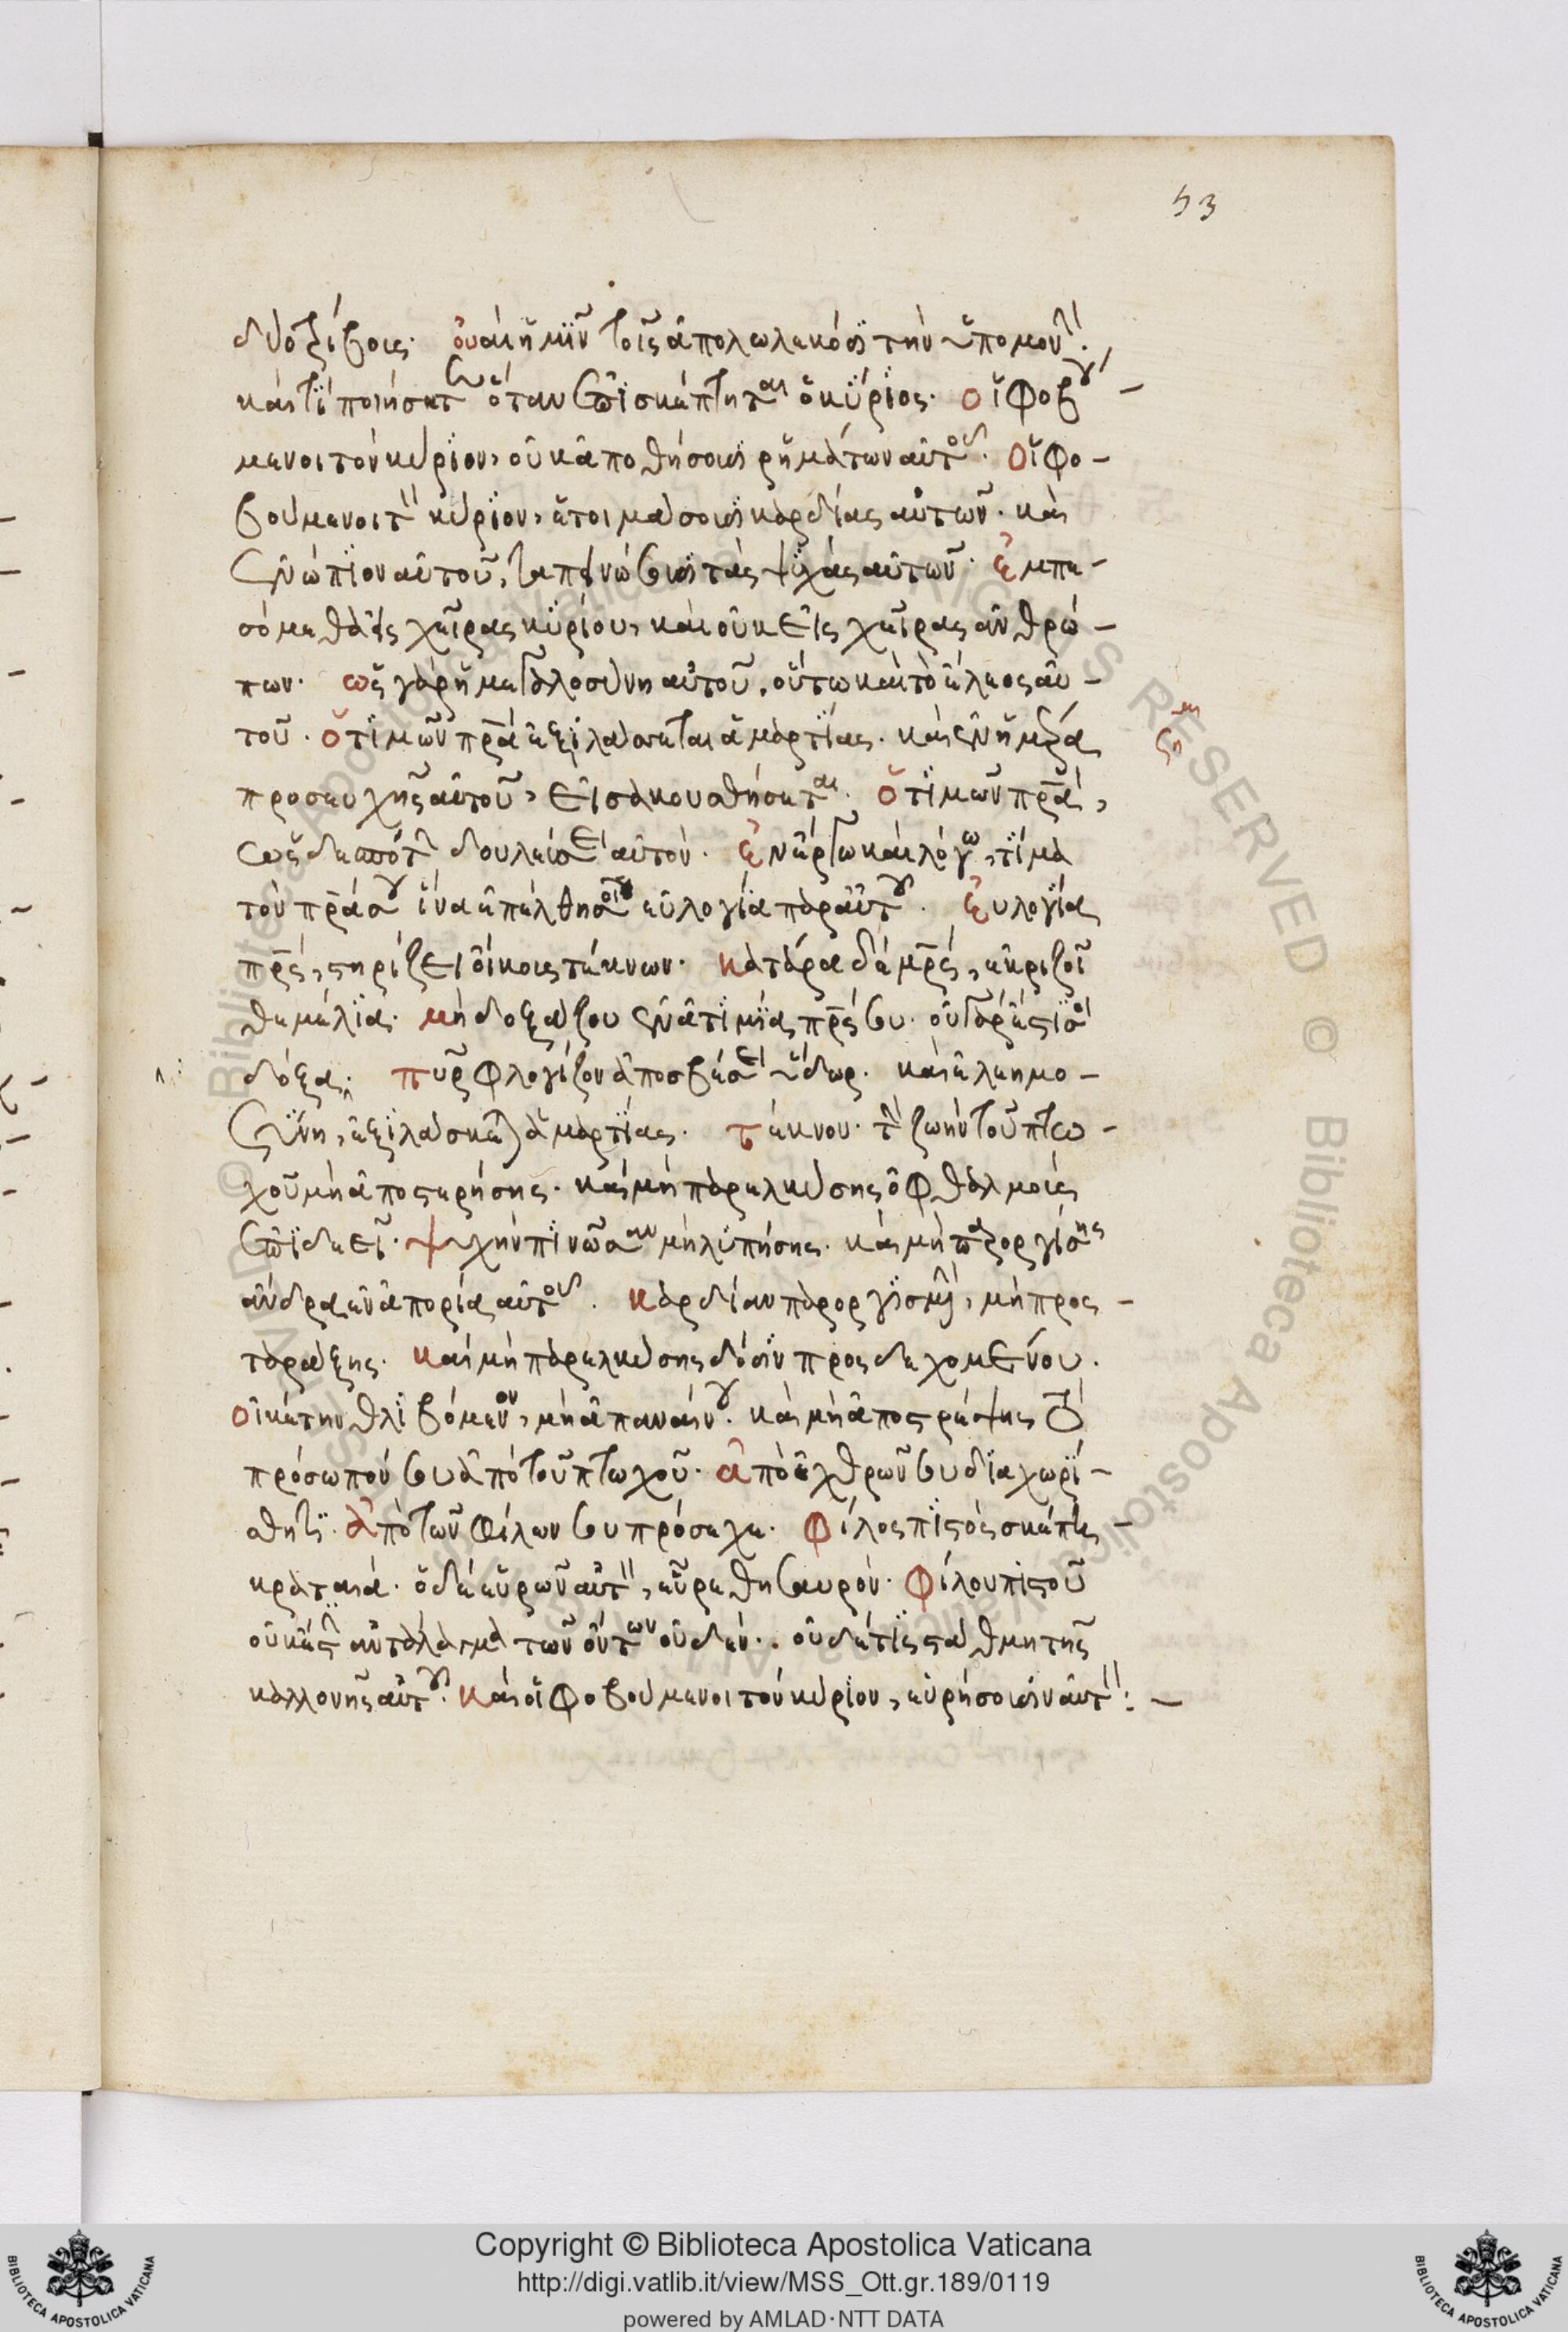 53
δύο τρίβους. οὐαὶ ἡμῖν τοῖς ἀπολωλεκόσι τὴν ὑπομονήν.
καὶ τί ποιήσετε ὅταν ἐπισκέπτηται ὁ κύριος. οἱ φοβού-
μενοι τὸν κύριον, οὐκ ἀπειθήσουσι ῥημάτων αὐτοῦ. Οἱ φο-
βούμενοι τὸν κύριον, ἑτοιμάσουσι καρδίας αὐτῶν. καὶ
ἐνώπιον αὐτοῦ, ταπεινώσουσι τὰς ψυχὰς αὐτῶν. ἐμπε-
σόμεθα εἰς χεῖρας κυρίου, καὶ οὐκ εἰς χεῖρας ἀνθρώ-
πων. ὡς γὰρ ἡ μεγαλοσύνη αὐτοῦ, οὕτω καὶ τὸ ἔλεος αὐ-
τοῦ. ὁ τιμῶν πρα ἐξιλάσκεται ἁμαρτίας. καὶ ἐν ἡμέρα
προσευχῆς αὐτοῦ, εἰσακουσθήσεται. ὁ τιμῶν πρα,
ὡς δεσπότην δουλεύσει αὐτόν. ἐν ἔργω καὶ λόγω, τίμα
τὸν πρα σου ἵνα ἐπέλθη σοι εὐλογία παρ' αὐτοῦ. εὐλογία
πρς, στηρίζει οἴκους τέκνων. κατάρα δὲ μρς, ἐκριζοῖ
θεμέλια. μὴ δοξάζου ἐν ἀτιμία πρς σου. οὐ γάρ ἐστί σοι
δόξα. πῦρ φλογιζον ἀποσβέσει ὕδωρ. καὶ ἐλεημο-
σύνη, ἐξιλάσκεται ἁμαρτίας. τέκνον. τὴν ζωὴν τοῦ πτω-
χοῦ μὴ ἀποστερήσης. καὶ μὴ παρελκύσης ὀφθαλμοὺς
ἐπιδεεῖς. ψυχὴν πινῶσαν μὴ λυπήσης. καὶ μὴ παροργίσης
ἄνδρα ἐν ἀπορία αὐτοῦ. καρδίαν παροργισμένην, μὴ προς-
ταράξης. καὶ μὴ παρελκύσης δόσιν προςδεχομένου.
οἰκέτην θλιβόμενον, μὴ ἀπαναίνου. καὶ μὴ ἀποστρέψης τὸ
πρόσωπόν σου ἀπὸ τοῦ πτωχοῦ. ἀπὸ ἐχθρῶν σου διαχωρί-
σθητι. ἀπὸ τῶν φίλων σου πρόσεχε. φίλος πιστὸς σκέπη
κραταιά. ὁ δὲ εὑρὼν αὐτὸν, εὗρε θησαυρόν. φίλου πιστοῦ
οὐκ ἔστιν ἀντάλαγμα τῶν ὄντων οὐδέν. οὐδέ τις σταθμὴ τῆς
καλλονῆς αὐτοῦ. καὶ οἱ φοβούμενοι τὸν κύριον, εὑρήσουσιν αὐτόν:
Copyright © Biblioteca Apostolica Vaticana
http://digi.vatlib.it/view/MSS_Ott.gr.189/0119
powered by AMLAD·NTT DATA